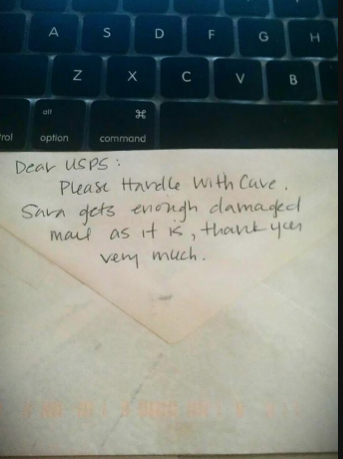 A S D F G H
Z X C V B
rol alt option ⌘ command
Dear USPS:
Please Handle With Care.
Sara gets enough damaged
mail as it is, thank you
very much.